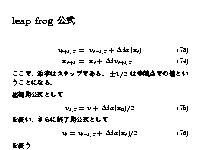 leap frog 公式
v_{i+1/2} = v_{i-1/2} + Δt a(x_i) (73)
x_{i+1} = x_i + Δt v_{i+1/2} (74)
ここで、添字はステップである。±1/2 は半時点での値とい
うことになる。
出発用公式として
v_{1/2} = v + Δt a(x_0)/2 (75)
を使い、さらに終了用公式として
v_i = v_{i-1/2} + Δt a(x_i)/2 (76)
を使う